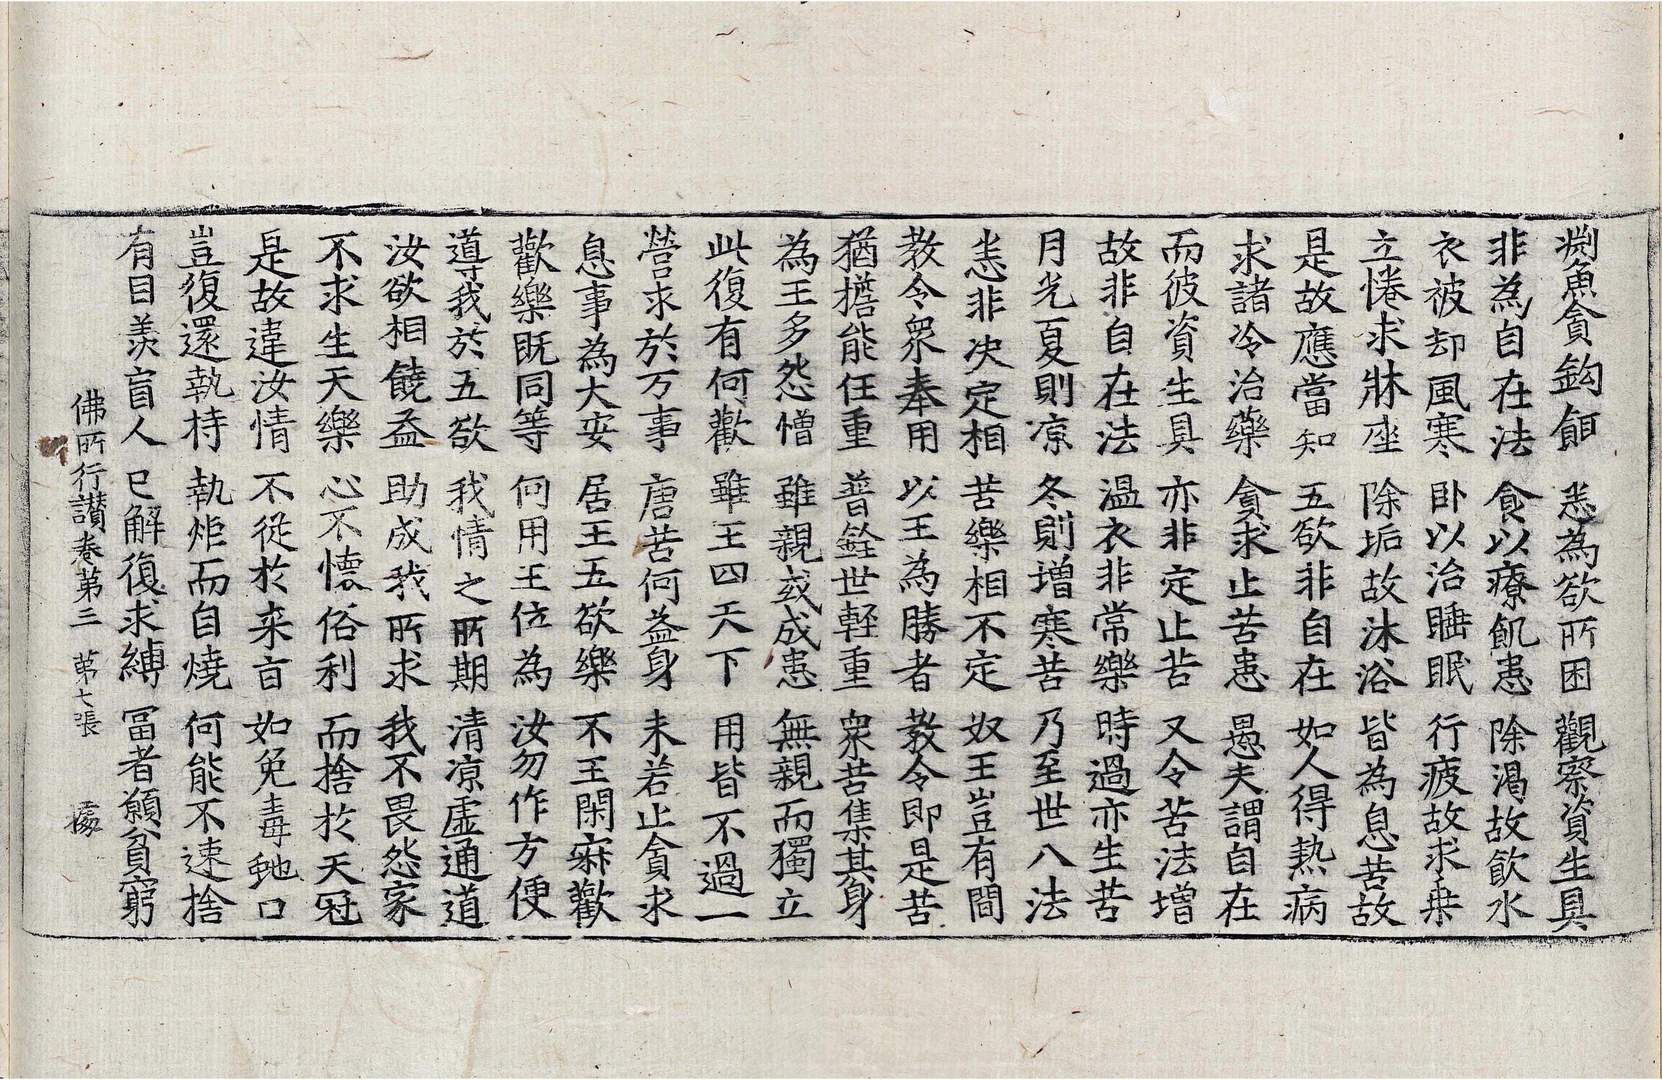 渕魚貪鈎餌 恙為欲所困 觀察資生具
非為自在法 食以療飢患 除渴故飲水
衣被却風寒 卧以治睡眠 行疲故求乗
立惓求牀座 除垢故沐浴 皆為息苦故
是故應當知 五欲非自在 如人得熱病
求諸冷治藥 貪求止苦患 愚夫謂自在
而彼資生具 亦非定止苦 又令苦法增
故非自在法 温衣非常樂 時過亦生苦
月光夏則凉 冬則增寒苦 乃至世八法
恙非决定相 苦樂相不定 奴王豈有間
教令衆奉用 以王為勝者 教令即是苦
猶擔能任重 普銓世輕重 衆苦集其身
為王多怨憎 雖親或成患 無親而獨立
此復有何歡 雖王四天下 用皆不過一
營求於万事 唐苦何益身 未若止貪求
息事為大安 居王五欲樂 不王閑寂歡
歡樂既同等 何用王位為 汝勿作方便
導我於五欲 我情之所期 清凉虚通道
汝欲相饒益 助成我所求 我不畏怨家
不求生天樂 心不懷俗利 而捨於天冠
是故違汝情 不從於来旨 如免毒虵口
豈復還執持 執炬而自燒 何能不速捨
有目羡盲人 已解復求縛 冨者願貧窮
佛所行讃卷第三 第七張 䖏